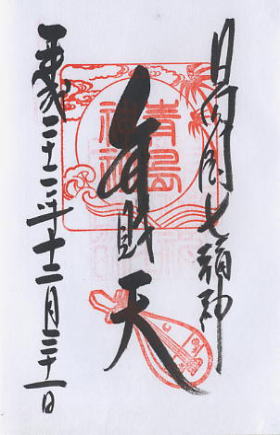 日向国七福神
青島
神社
弁財天
平成二十二年十二月三十一日